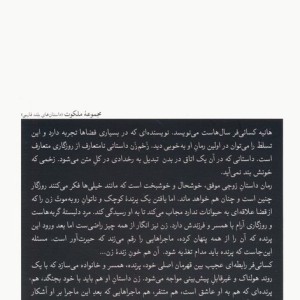 مجموعهٔ ملکوت (داستان‌های بلند فارسی)
هانیه کسائی‌فر سال‌هاست می‌نویسد. نویسنده‌ای که در بسیاری فضاها تجربه دارد و این
تسلط را می‌توان در اولین رمان او به‌خوبی دید. زخم‌زن داستانی نامتعارف از روزگاری متعارف
است. داستانی که در آن یک اتاق در بدن تبدیل به رخدادی در کل متن می‌شود. زخمی که
خونش بند نمی‌آید.
رمان داستان زوجی موفق، خوشحال و خوشبخت است که مانند خیلی‌ها فکر می‌کنند روزگار
چنین است و چنان هم خواهد ماند. اما یافتن یک پرندهٔ کوچک و ناتوان روبه‌موت زن را که
از قضا علاقه‌ای به حیوانات ندارد مجاب می‌کند تا به او رسیدگی کند. مرد دلبستهٔ گربه‌هاست
و روزگاری آرام با همسر و فرزندش دارد. زن نیز انگار از همه چیز راضی‌ست اما بعد ورود این
پرنده که آن را از همه پنهان کرده، ماجراهایی را رقم می‌زند که حیرت‌آور است. مسئله
این‌جاست که پرنده باید مدام تغذیه شود. آن هم خونِ زندهٔ زن...
کسائی‌فر رابطه‌ای عجیب بین قهرمان اصلی خود، پرنده، همسر و خانواده می‌سازد که با یک
روند هولناک و غیرقابل پیش‌بینی مواجه می‌شود. زنی که باید با خود بجنگد، هم
پرنده‌ای که هم به او عاشق است، هم متنفر، هم ماجراهایی که بعدِ این ماجرا بر او آشکار